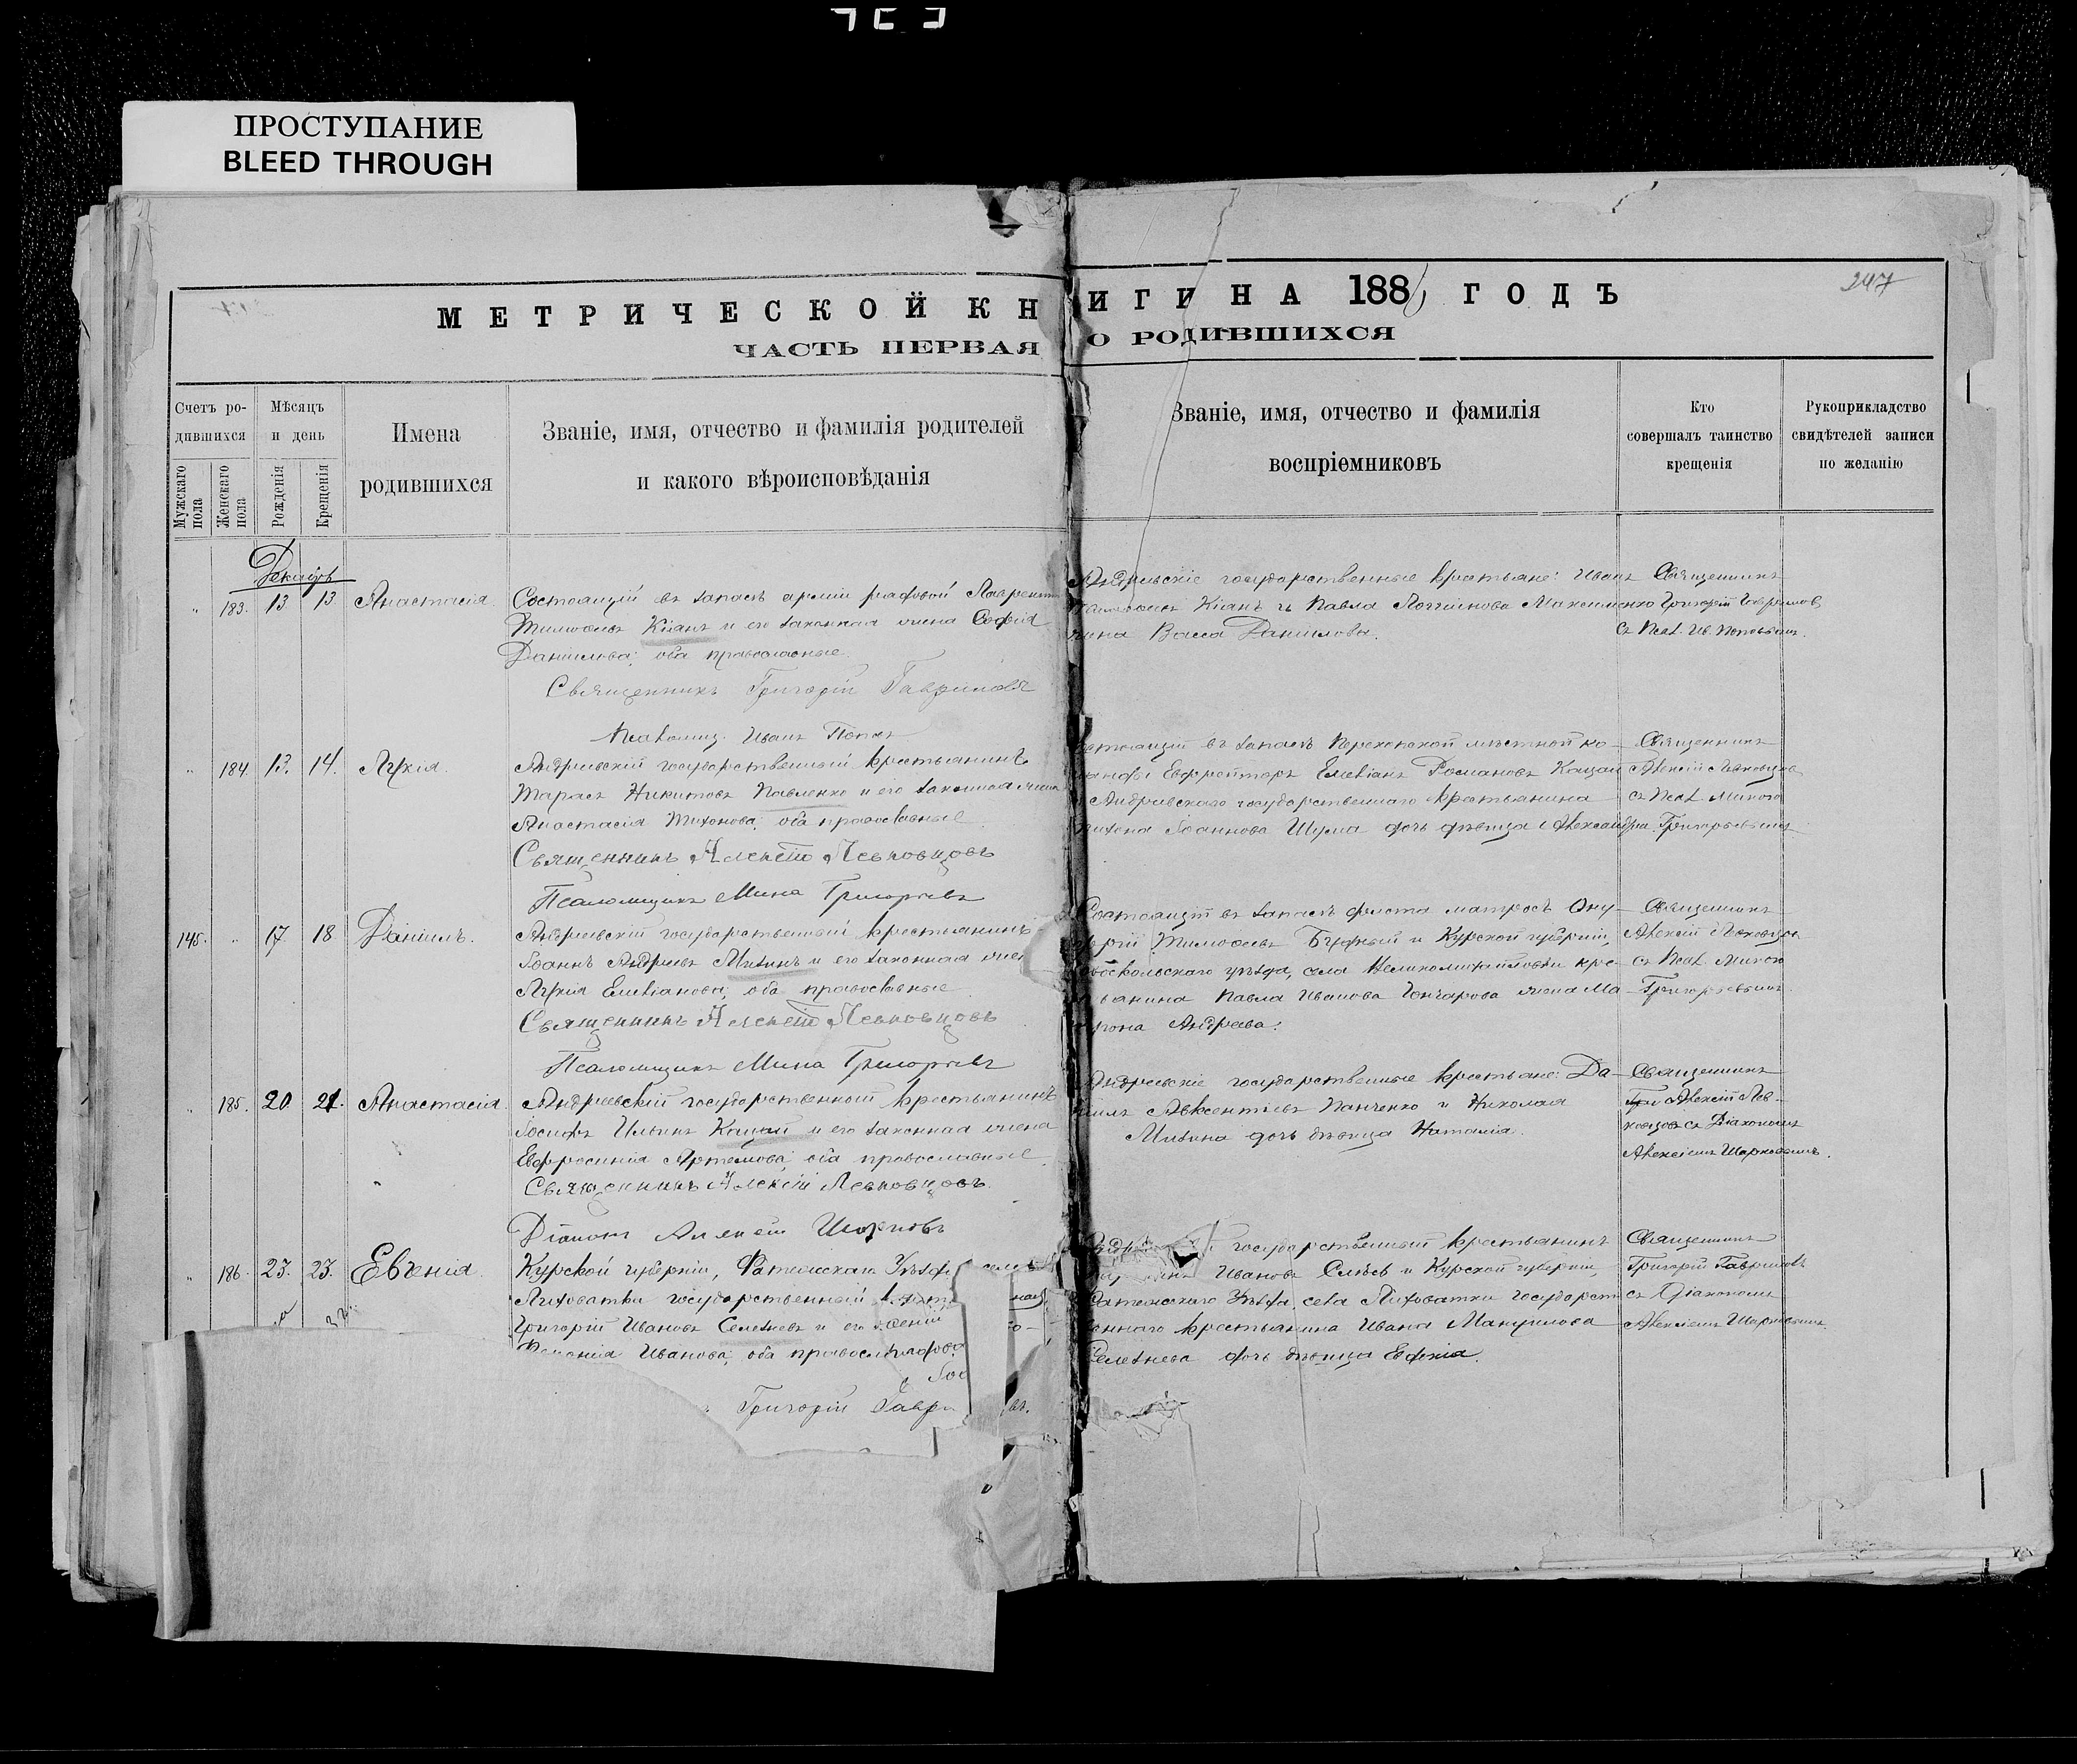 ПРОСТУПАНИЕ
BLEED THROUGH
247
МЕТРИЧЕСКОЙ КНИГИ НА 188 ГОДЪ
ЧАСТЬ ПЕРВАЯ О РОДИВШИХСЯ
Счетъ ро-
дившихся
Мужскаго пола
Женскаго пола
Мѣсяцъ
и день
Рожденія
Крещенія
Имена
родившихся
Званіе, имя, отчество и фамилія родителей
и какого вѣроисповѣданія
Званіе, имя, отчество и фамилія
воспріемниковъ
Кто
совершалъ таинство
крещенія
Рукоприкладство
свидѣтелей записи
по желанію
Декабрь
183. 13 13 Анастасія
Состоящій въ запасѣ арміи рядовой Лаврентій
Тимофеевъ Кіанъ и его законная жена Софія
Даніилова; оба православные.
Священникъ Григорій Гавриловъ
Псаломщ. Иванъ Поповъ
государственные крестьяне: Иванъ
Кіанъ и Павла Логгинова Максименко
жена Васса Данилова.
Священникъ
Григорій Гавриловъ
съ Псал. Ив. Поповымъ.
184. 13. 14. Лукія.
Андреевскій государственный крестьянинъ
Тарасъ Никитовъ Павленко и его законная жена
Анастасія Тихонова; оба православные
Священникъ Алексѣй Левковцовъ
Псаломщикъ Мина Григорьевъ
въ запасѣ Перекопской мѣстной ко-
Ефрейторъ Емеліанъ Романовъ Кацай
Андреевскаго государственнаго крестьянина
Іоаннова Шума дочь дѣвица Александра.
Священникъ
Алексій Левковцовъ
съ Псал. Миною
Григорьевымъ
145. 17 18 Даніилъ.
Андреевскій государственный крестьянинъ
Іоаннъ Андреевъ Мизинъ и его законная жена
Лукія Емеліанова; оба православные
Священникъ Алексѣй Левковцовъ
Псаломщикъ Мина Григорьевъ
Состоящій въ запасѣ флота матросъ Ону-
фрій Тимофеевъ и Курской губерніи,
уѣзда, села Великомихайловки кре-
Павла Иванова Гончарова жена Ма-
трона Андреева.
Священникъ
Алексій Левковцовъ
съ Псал. Миною
Григорьевымъ.
185. 20 21. Анастасія
Андреевскій государственной крестьянинъ
Іосифъ Ильинъ Кацай и его законная жена
Евфросинія Артемова; оба православные
Священникъ Алексій Левковцовъ.
Діаконъ Алексѣй Шарковъ
Андреевскіе государственные крестьяне: Да-
ніилъ Авксентіевъ Панченко и Николая
Мизина дочь дѣвица Наталія.
Священникъ
Алексій Лев-
ковцовъ съ Діакономъ
Алексіемъ Шарковымъ.
186. 23. 23. Евѳенія
Курской губерніи, Фатежскаго Уѣзда
Лиховатки государственный
Григорій Ивановъ Селезневъ и его
Иванова; оба
Григорій Гаври
государственный крестьянинъ
Ивановъ и Курской губерніи,
Фатежскаго Уѣзда, села Лиховатки государст-
веннаго крестьянина Ивана
Селезнева дочь дѣвица Евфимія.
Священникъ
Григорій Гавриловъ
съ Діакономъ
Алексіемъ Шарковымъ.